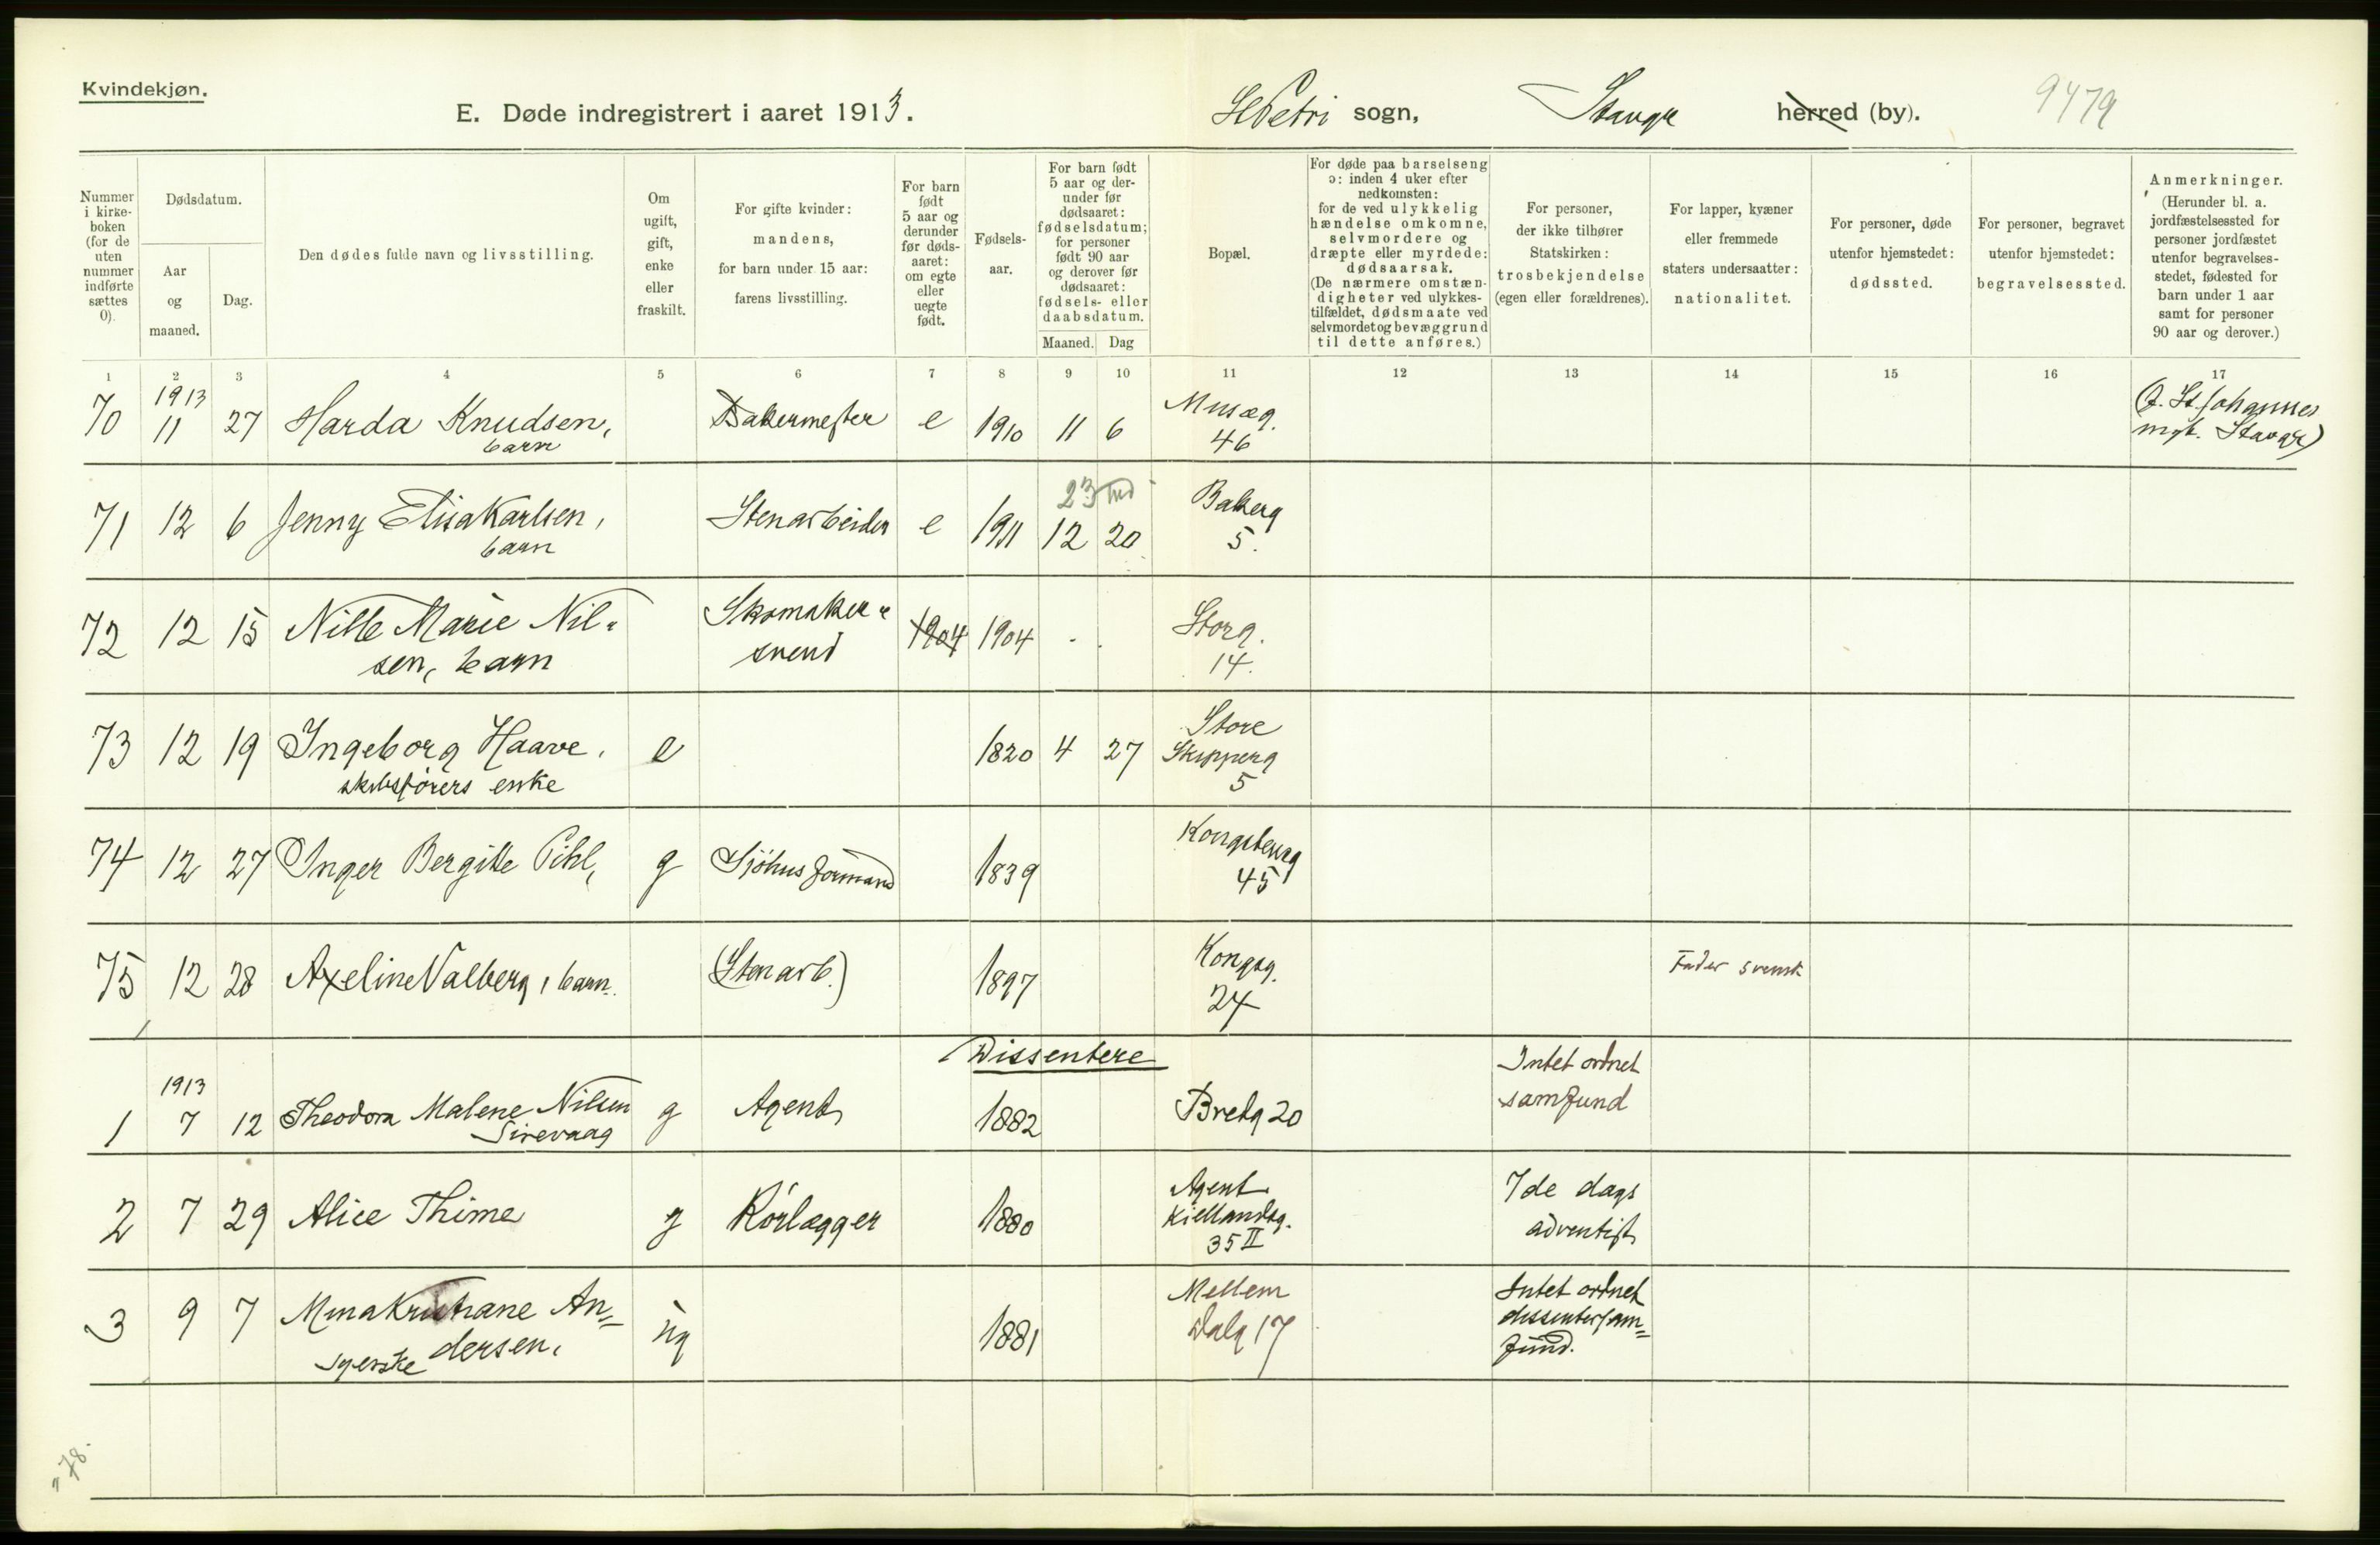 Kvindekjøn.
E. Døde indregistrert i aaret 1913.
St Petri sogn, Stavgr herred (by).
9479
Nummer i kirkeboken (for de uten nummer indførte sættes 0).
Dødsdatum.
Aar og maaned.
Dag.
Den dødes fulde navn og livsstilling.
Om ugift, gift, enke eller fraskilt.
For gifte kvinder: mandens, for barn under 15 aar: farens livsstilling.
For barn født 5 aar og derunder før dødsaaret: om egte eller uegte født.
Fødselsaar.
For barn født 5 aar og derunder før dødsaaret: fødselsdatum; for personer født 90 aar og derover før dødsaaret: fødsels- eller daabsdatum.
Maaned. Dag
Bopæl.
For døde paa barselseng ɔ: inden 4 uker efter nedkomsten: for de ved ulykkelig hændelse omkomne, selvmordere og dræpte eller myrdede: dødsaarsak. (De nærmere omstændigheter ved ulykkestilfældet, dødsmaate ved selvmordet og bevæggrund til dette anføres.)
For personer, der ikke tilhører Statskirken: trosbekjendelse (egen eller forældrenes).
For lapper, kvæner eller fremmede staters undersaatter: nationalitet.
For personer, døde utenfor hjemstedet: dødssted.
For personer, begravet utenfor hjemstedet: begravelsessted.
Anmerkninger. (Herunder bl. a. jordfæstelsessted for personer jordfæstet utenfor begravelsesstedet, fødested for barn under 1 aar samt for personer 90 aar og derover.)
1 2 3 4 5 6 7 8 9 10 11 12 13 14 15 16 17
70 1913 11 27 Harda Knudsen, barn Bakermester e 1910 11 6 Musæg. 46 (f. St. Johannes mgh. Stavgr)
71 12 6 Jenny Elisa Karlsen, barn Stenarbeider e 1911 23 md 12 20 Bakerg 5.
72 12 15 Nille Marie Nilsen, barn Skomakersvend 1904 1904 Storg. 14.
73 12 19 Ingeborg Haave, skibsførers enke e 1820 4 27 Store Skipperg 5
74 12 27 Inger Bergitte Pihl, g Sjöhusformand 1839 Kongstensg 45
75 12 28 Axeline Valberg, barn. (Stenarb.) 1897 Kongsg. 24 Fader svensk
Dissentere
1 1913 7 12 Theodora Malene Nilsen Sirevaag g Agent 1882 Bredg 20 Intet ordnet samfund
2 7 29 Alice Thime g Rörlægger 1880 Agent Kiellandsg. 35 II 7de dags adventist
3 9 7 Mina Kristiane Andersen, syerske ug 1881 Mellem Dalg 17 Intet ordnet dissentersamfund.
" 78.